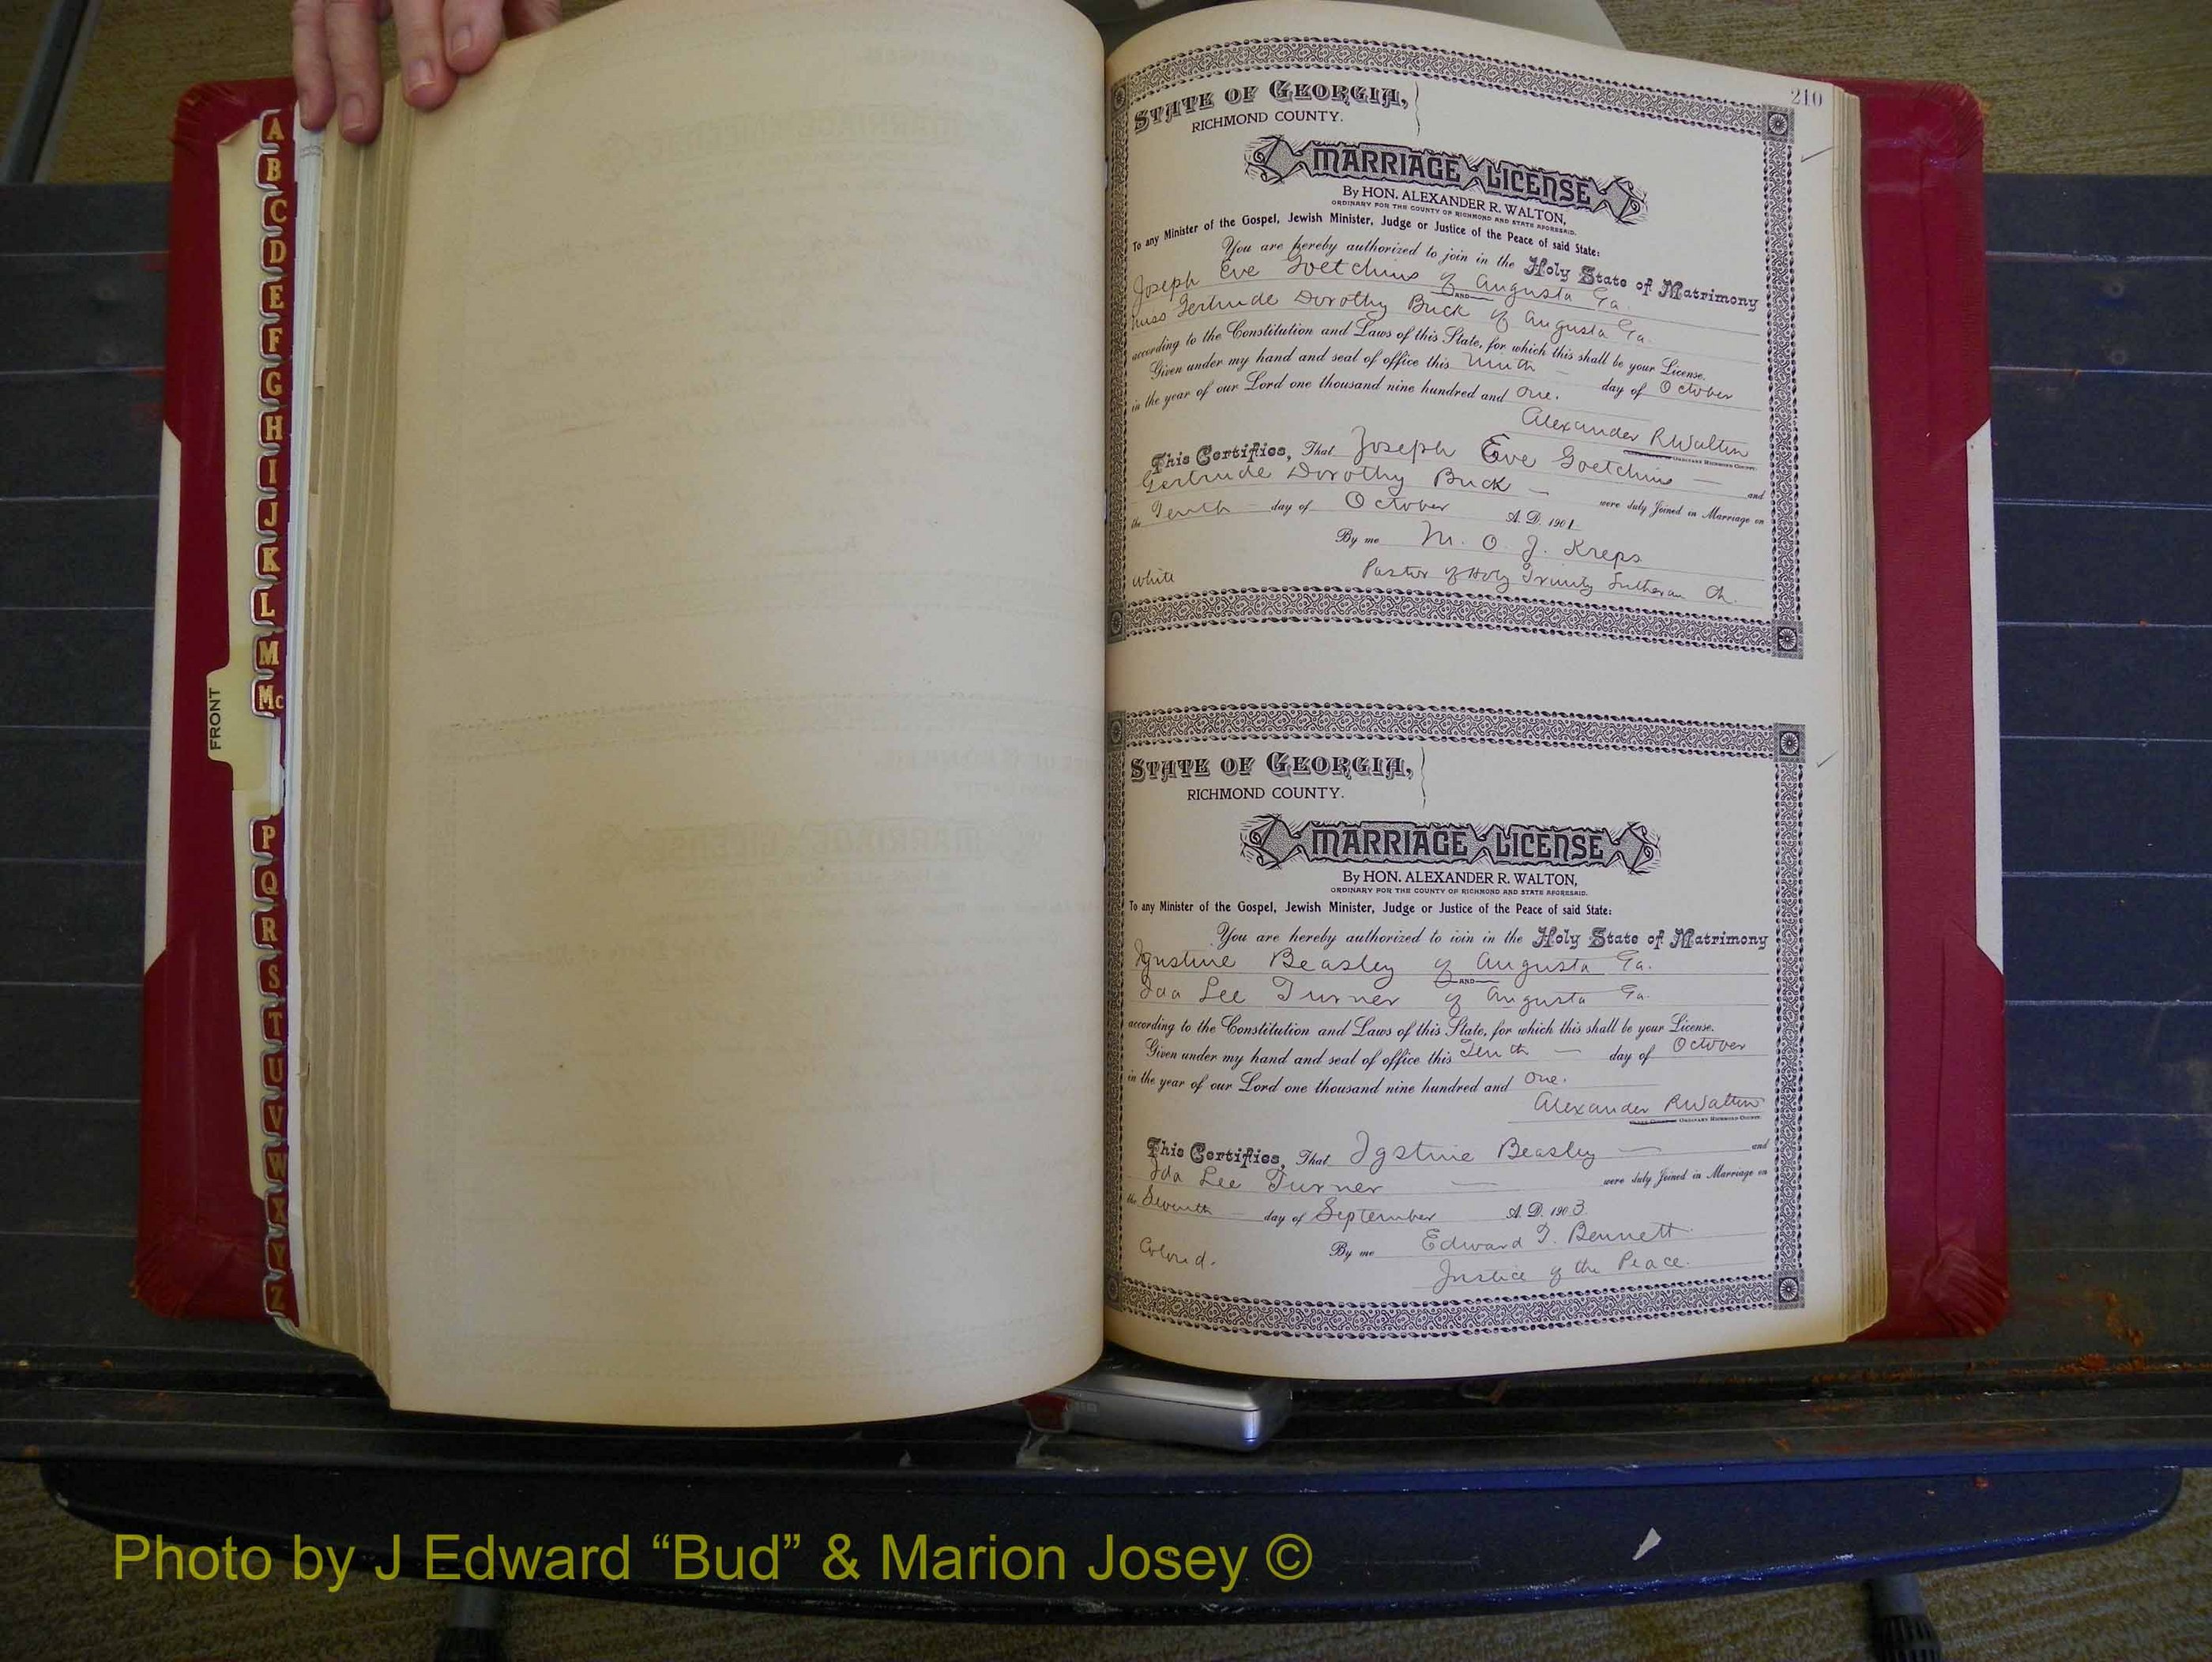 A
B
C
D
E
F
G
H
I
J
K
L
M
Mc
FRONT
P
Q
R
S
T
U
V
W
X
Y
Z
210
STATE OF GEORGIA,
RICHMOND COUNTY.
MARRIAGE LICENSE
By HON. ALEXANDER R. WALTON,
ORDINARY FOR THE COUNTY OF RICHMOND AND STATE AFORESAID.
To any Minister of the Gospel, Jewish Minister, Judge or Justice of the Peace of said State:
You are hereby authorized to join in the Holy State of Matrimony
Joseph Eve Goetchius of Augusta Ga.
AND
Miss Gertrude Dorothy Buck of Augusta Ga.
according to the Constitution and Laws of this State, for which this shall be your License.
Given under my hand and seal of office this Ninth day of October
in the year of our Lord one thousand nine hundred and One.
Alexander R Walton
ORDINARY RICHMOND COUNTY.
This Certifies, That Joseph Eve Goetchius — and
Gertrude Dorothy Buck — were duly Joined in Marriage on
the Tenth — day of October A. D. 1901
By me M. O. J. Kreps
white Pastor of Holy Trinity Lutheran Ch.
STATE OF GEORGIA,
RICHMOND COUNTY.
MARRIAGE LICENSE
By HON. ALEXANDER R. WALTON,
ORDINARY FOR THE COUNTY OF RICHMOND AND STATE AFORESAID.
To any Minister of the Gospel, Jewish Minister, Judge or Justice of the Peace of said State:
You are hereby authorized to join in the Holy State of Matrimony
Beasley of Augusta Ga.
AND
Ida Lee Turner of Augusta Ga.
according to the Constitution and Laws of this State, for which this shall be your License.
Given under my hand and seal of office this Tenth — day of October
in the year of our Lord one thousand nine hundred and One.
Alexander R Walton
ORDINARY RICHMOND COUNTY.
This Certifies, That Igstine Beasley — and
Ida Lee Turner — were duly Joined in Marriage on
the Seventh — day of September A. D. 1903
By me Edward T. Bennett
Colored. Justice of the Peace.
Photo by J Edward “Bud” & Marion Josey ©